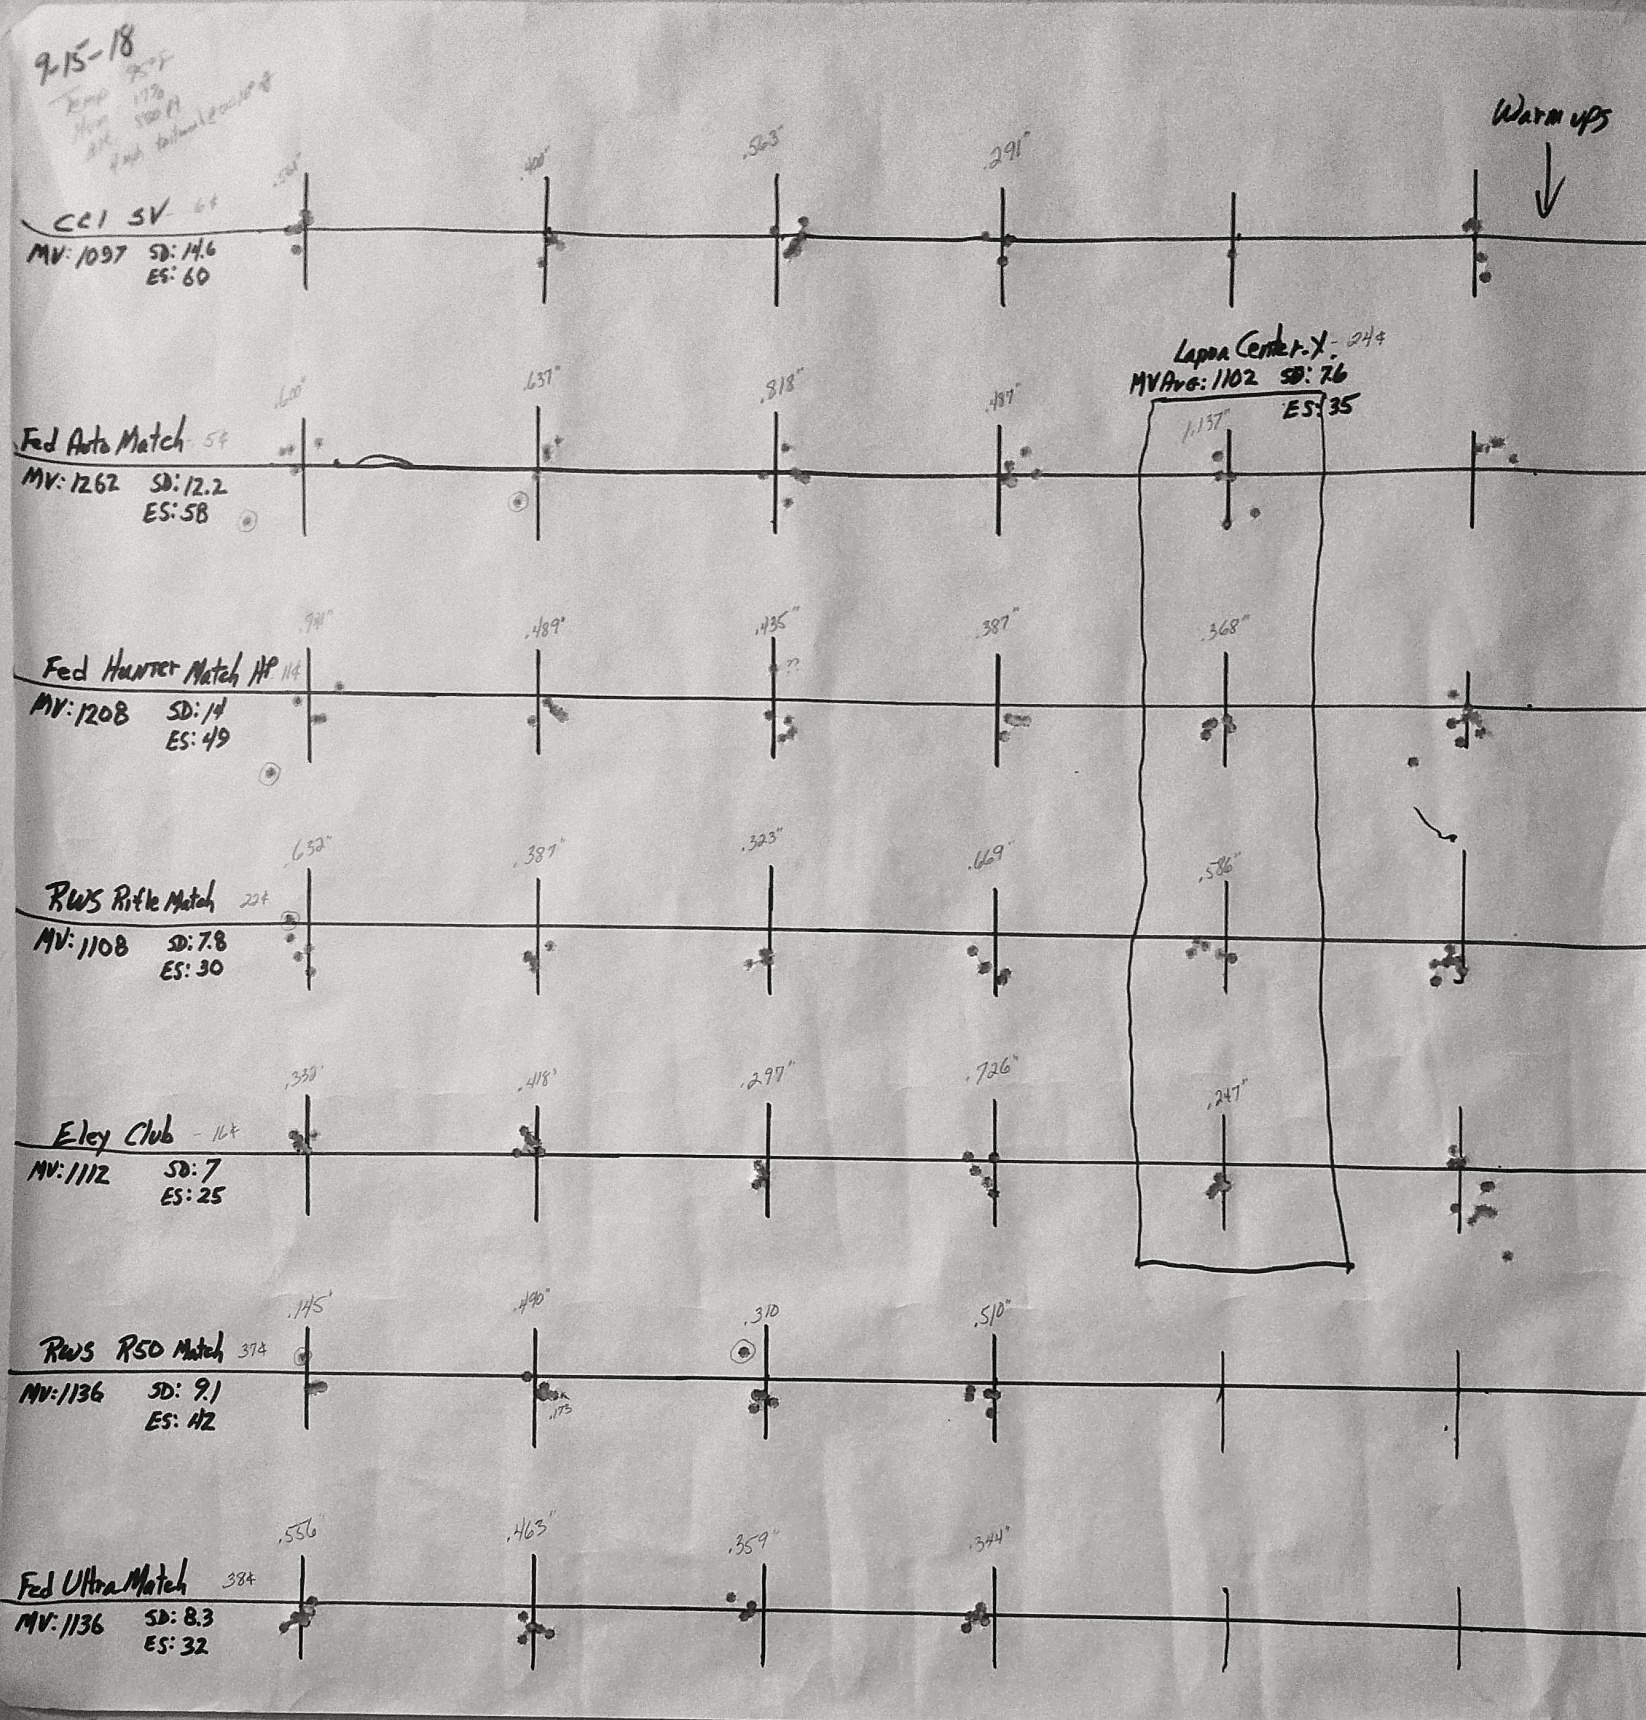 9-15-18
Temp 95°F
Hum 17%
4 mph
Warm ups
.400" .563" .291"
CCI SV - 6¢
MV: 1097 SD: 14.6
ES: 60
Lapua Center-X - 24¢
MV Avg: 1102 SD: 7.6
ES: 35
.600" .637" .818" .487" 1.137"
Fed Auto Match - 5¢
MV: 1262 SD: 12.2
ES: 58
.489" .435" .387" .368"
Fed Hunter Match HP 11¢
??
MV: 1208 SD: 14
ES: 49
.632" .387" .323" .669" .586"
RWS Rifle Match 22¢
MV: 1108 SD: 7.8
ES: 30
.332" .418" .297" .726" .247"
Eley Club - 16¢
MV: 1112 SD: 7
ES: 25
.145" .490" .310 .510"
RWS R50 Match 37¢
MV: 1136 SD: 9.1
.173
ES: 42
.556" .463" .359" .344"
Fed Ultra Match 38¢
MV: 1136 SD: 8.3
ES: 32